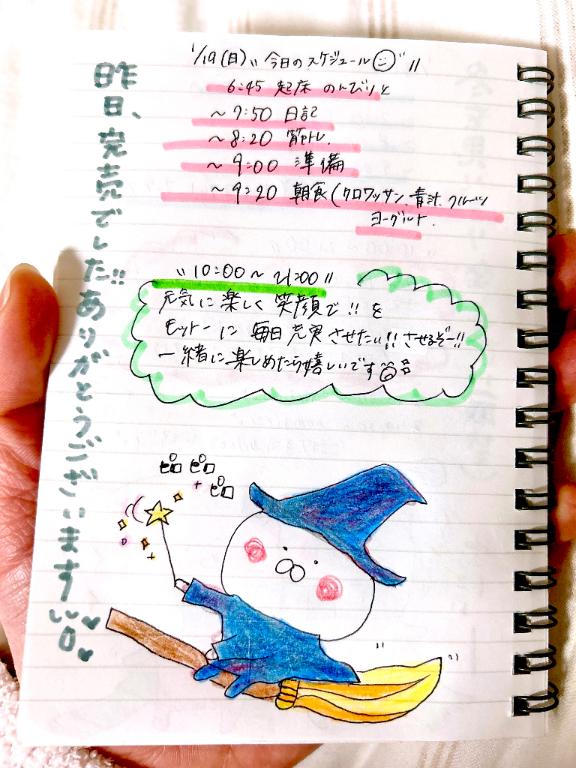 1/19(日)〃今日のスケジュール〃
6:45 起床 のんびりと
〜7:50 日記
〜8:20 筋トレ.
〜9:00 準備
〜9:20 朝食(クロワッサン、青汁、フルーツ
ヨーグルト.
〃10:00〜21:00〃
元気に楽しく笑顔で!!を
モットーに毎日充実させたい!!させるぞー!!
一緒に楽しめたら嬉しいです
昨日、完売でした!!ありがとうございます!!
ピロ ピロ
ピロ